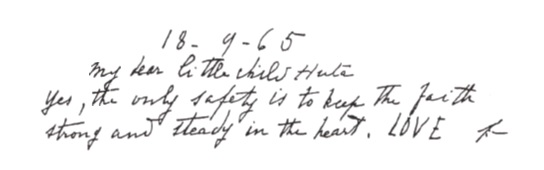 18-9-65
My dear little child Huta
Yes, the only safety is to keep the faith
strong and steady in the heart. LOVE